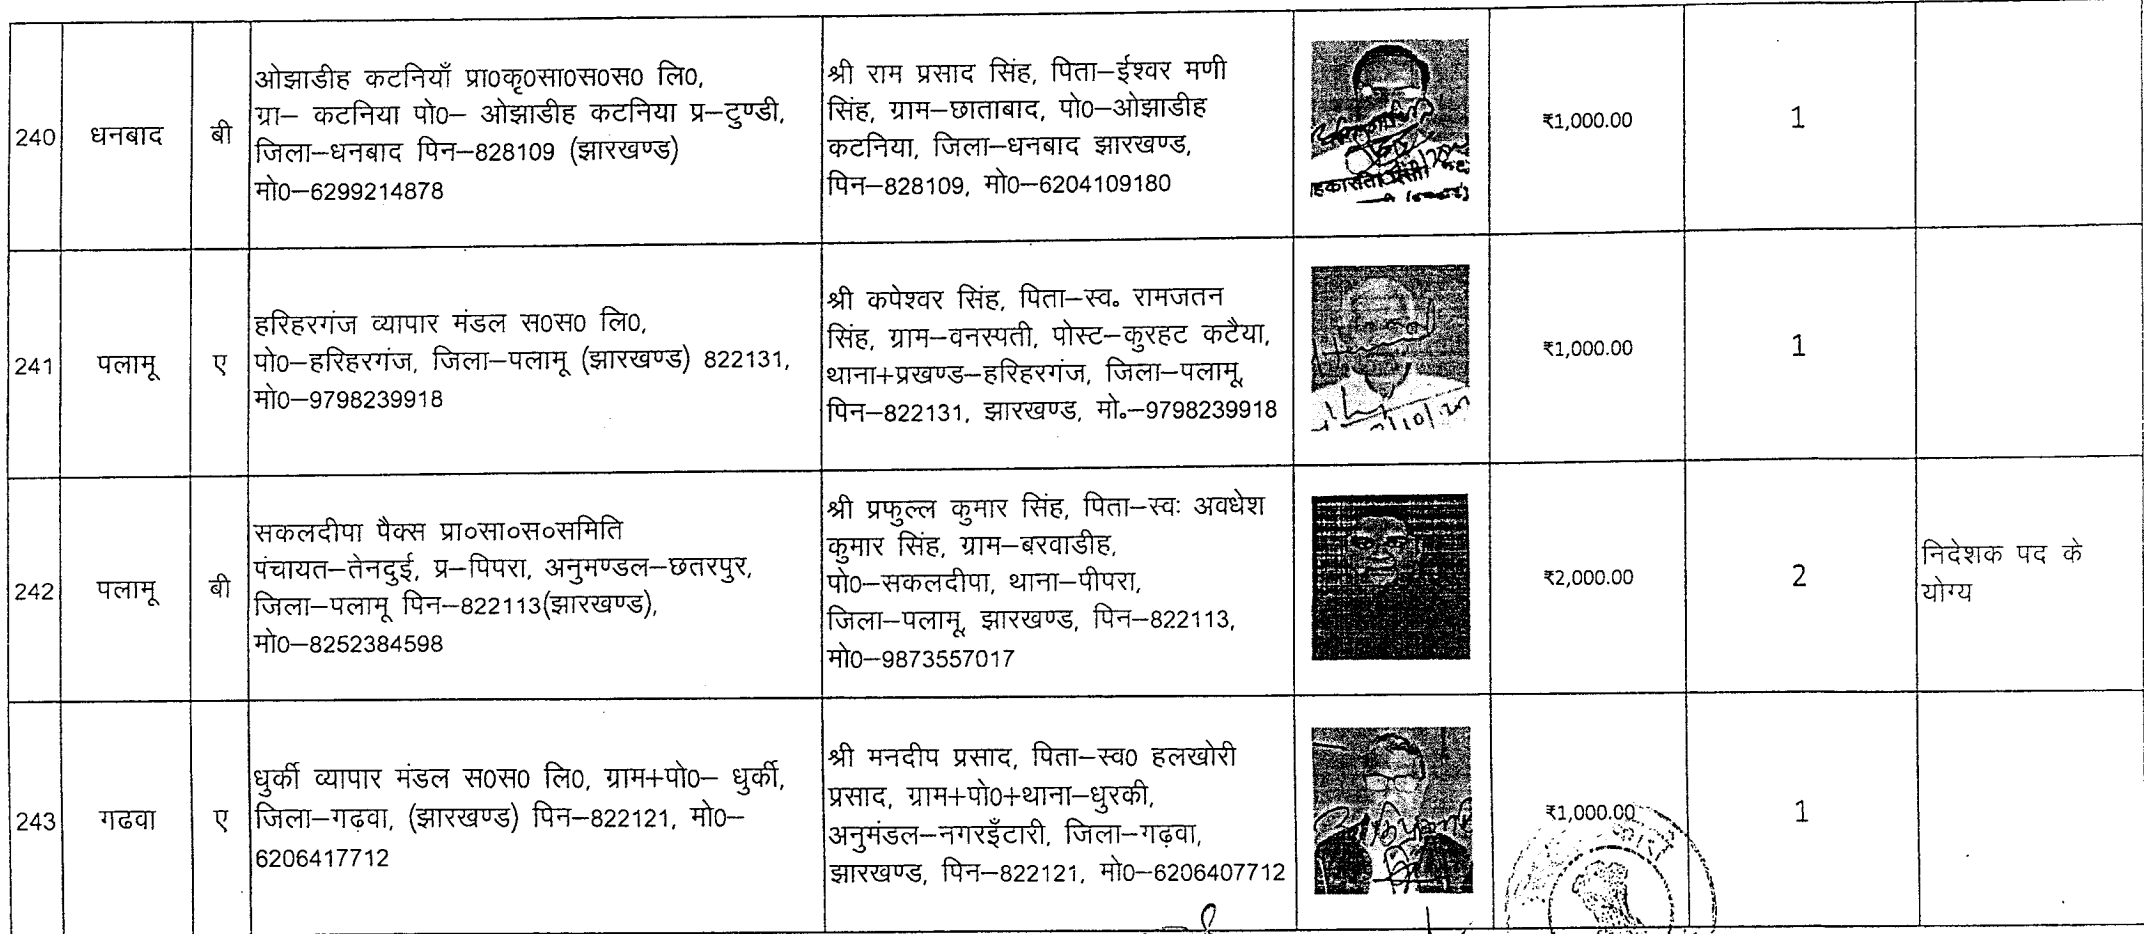 240
धनबाद
बी
ओझाडीह कटनियाँ प्रा0कृ0सा0स0स0 लि0,
ग्रा– कटनिया पो0– ओझाडीह कटनिया प्र–टुण्डी,
जिला–धनबाद पिन–828109 (झारखण्ड)
मो0–6299214878
श्री राम प्रसाद सिंह, पिता–ईश्वर मणी
सिंह, ग्राम–छाताबाद, पो0–ओझाडीह
कटनिया, जिला–धनबाद झारखण्ड,
पिन–828109, मो0–6204109180
₹1,000.00
1
241
पलामू
ए
हरिहरगंज व्यापार मंडल स0स0 लि0,
पो0–हरिहरगंज, जिला–पलामू (झारखण्ड) 822131,
मो0–9798239918
श्री कपेश्वर सिंह, पिता–स्व॰ रामजतन
सिंह, ग्राम–वनस्पती, पोस्ट–कुरहट कटैया,
थाना+प्रखण्ड–हरिहरगंज, जिला–पलामू,
पिन–822131, झारखण्ड, मो॰–9798239918
₹1,000.00
1
242
पलामू
बी
सकलदीपा पैक्स प्रा०सा०स०समिति
पंचायत–तेनदुई, प्र–पिपरा, अनुमण्डल–छतरपुर,
जिला–पलामू पिन–822113(झारखण्ड),
मो0–8252384598
श्री प्रफुल्ल कुमार सिंह, पिता–स्वः अवधेश
कुमार सिंह, ग्राम–बरवाडीह,
पो0–सकलदीपा, थाना–पीपरा,
जिला–पलामू, झारखण्ड, पिन–822113,
मो0–9873557017
₹2,000.00
2
निदेशक पद के
योग्य
243
गढवा
ए
धुर्की व्यापार मंडल स0स0 लि0, ग्राम+पो0– धुर्की,
जिला–गढवा, (झारखण्ड) पिन–822121, मो0–
6206417712
श्री मनदीप प्रसाद, पिता–स्व0 हलखोरी
प्रसाद, ग्राम+पो0+थाना–धुरकी,
अनुमंडल–नगरइँटारी, जिला–गढ़वा,
झारखण्ड, पिन–822121, मो0–6206407712
₹1,000.00
1